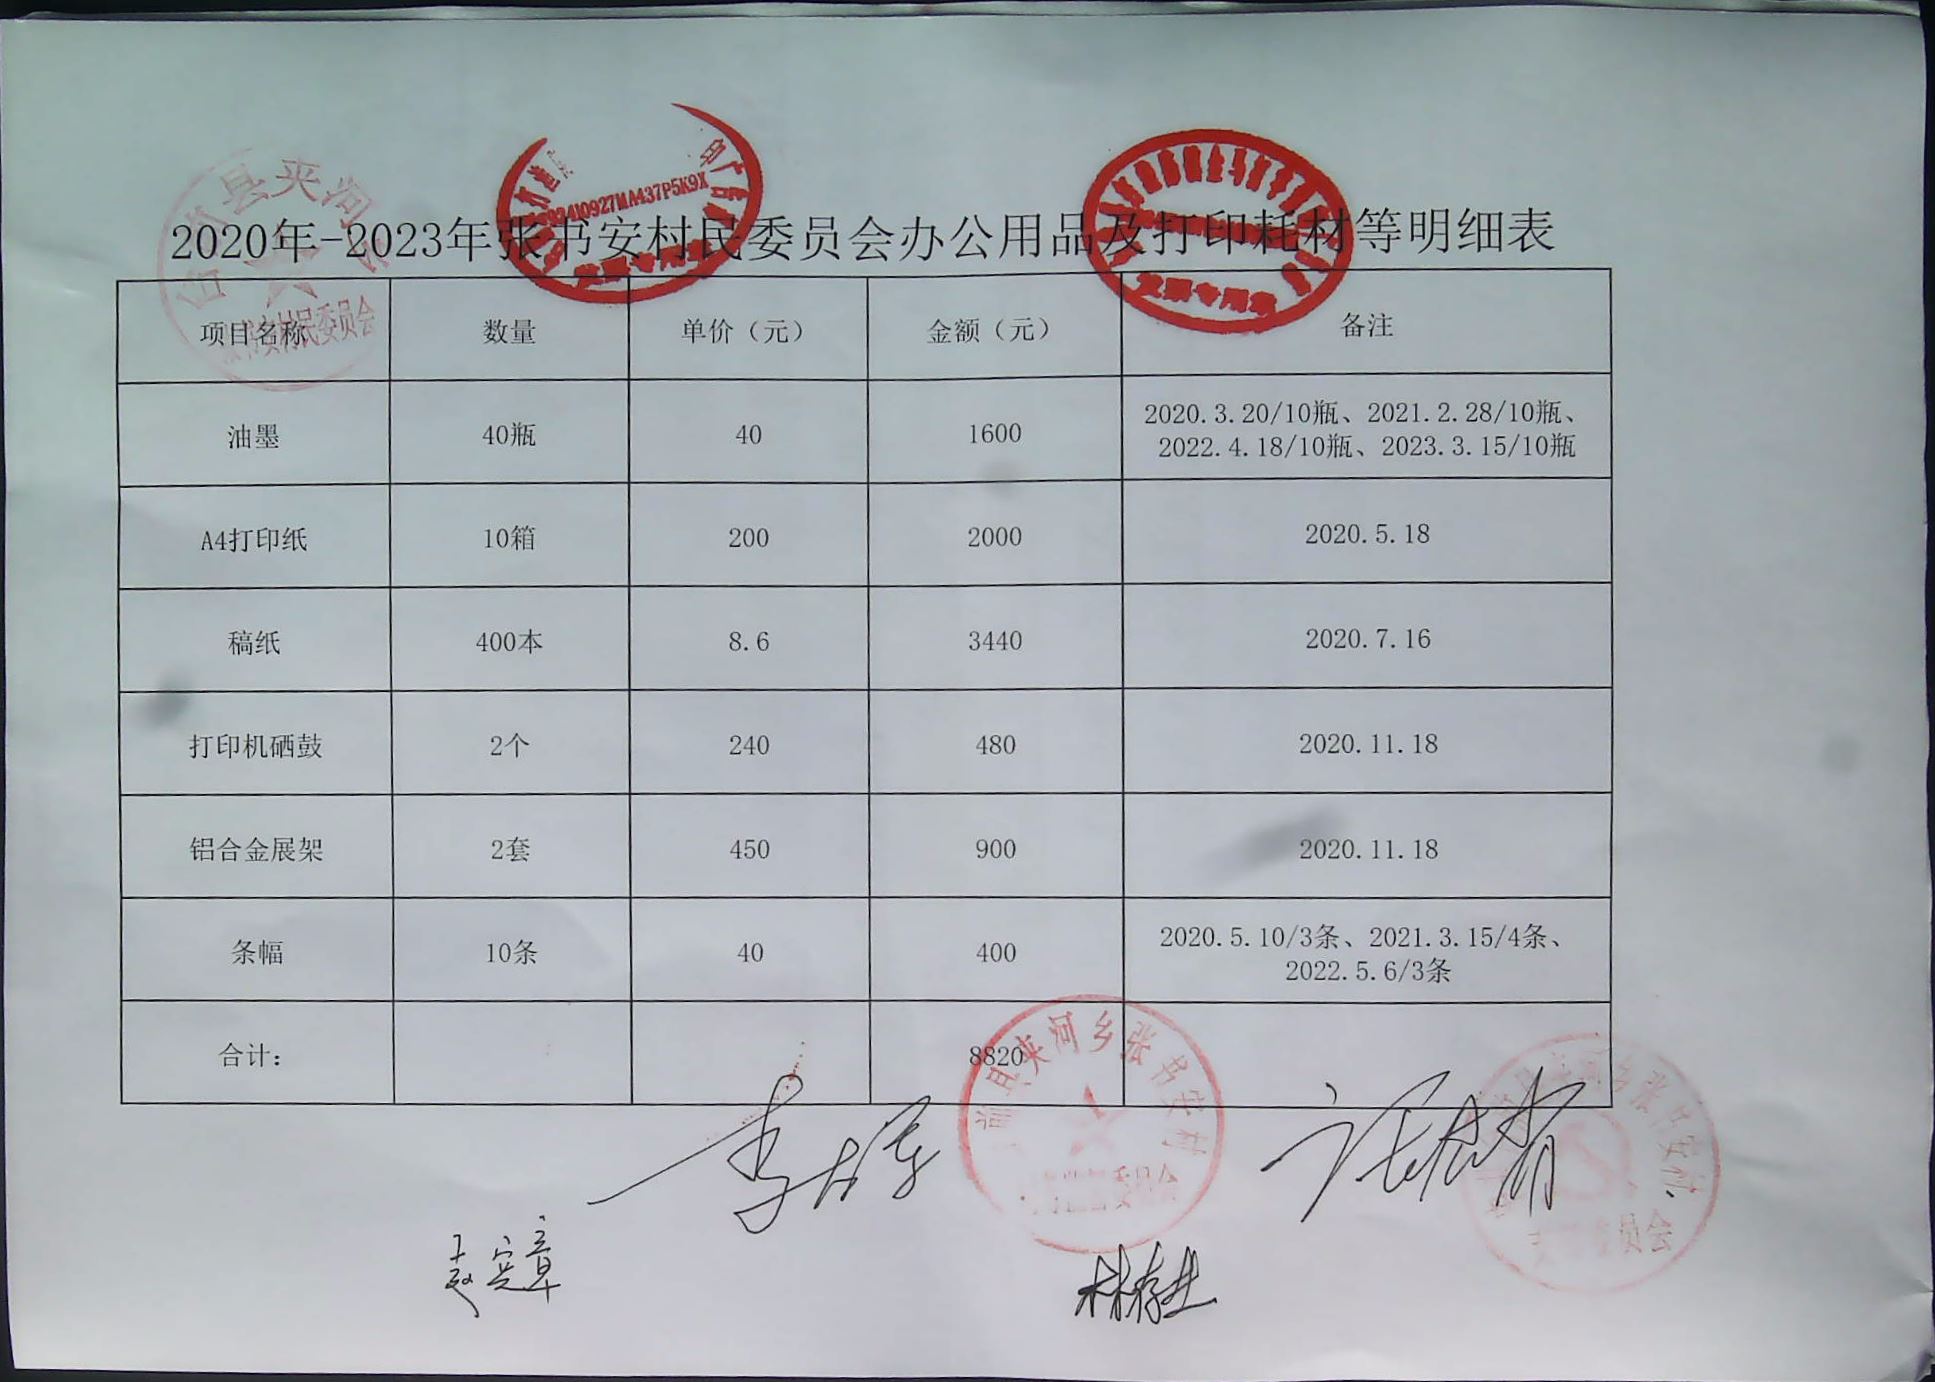 2020年-2023年张书安村民委员会办公用品及打印耗材等明细表
项目名称 数量 单价（元） 金额（元） 备注
油墨 40瓶 40 1600 2020.3.20/10瓶、2021.2.28/10瓶、
2022.4.18/10瓶、2023.3.15/10瓶
A4打印纸 10箱 200 2000 2020.5.18
稿纸 400本 8.6 3440 2020.7.16
打印机硒鼓 2个 240 480 2020.11.18
铝合金展架 2套 450 900 2020.11.18
条幅 10条 40 400 2020.5.10/3条、2021.3.15/4条、
2022.5.6/3条
合计： 8820
县夹河
村民委员会
10927MA437P5K9X
发票专用章
发票专用章
县夹河乡张书安村
委员会
乡张书安村
员会